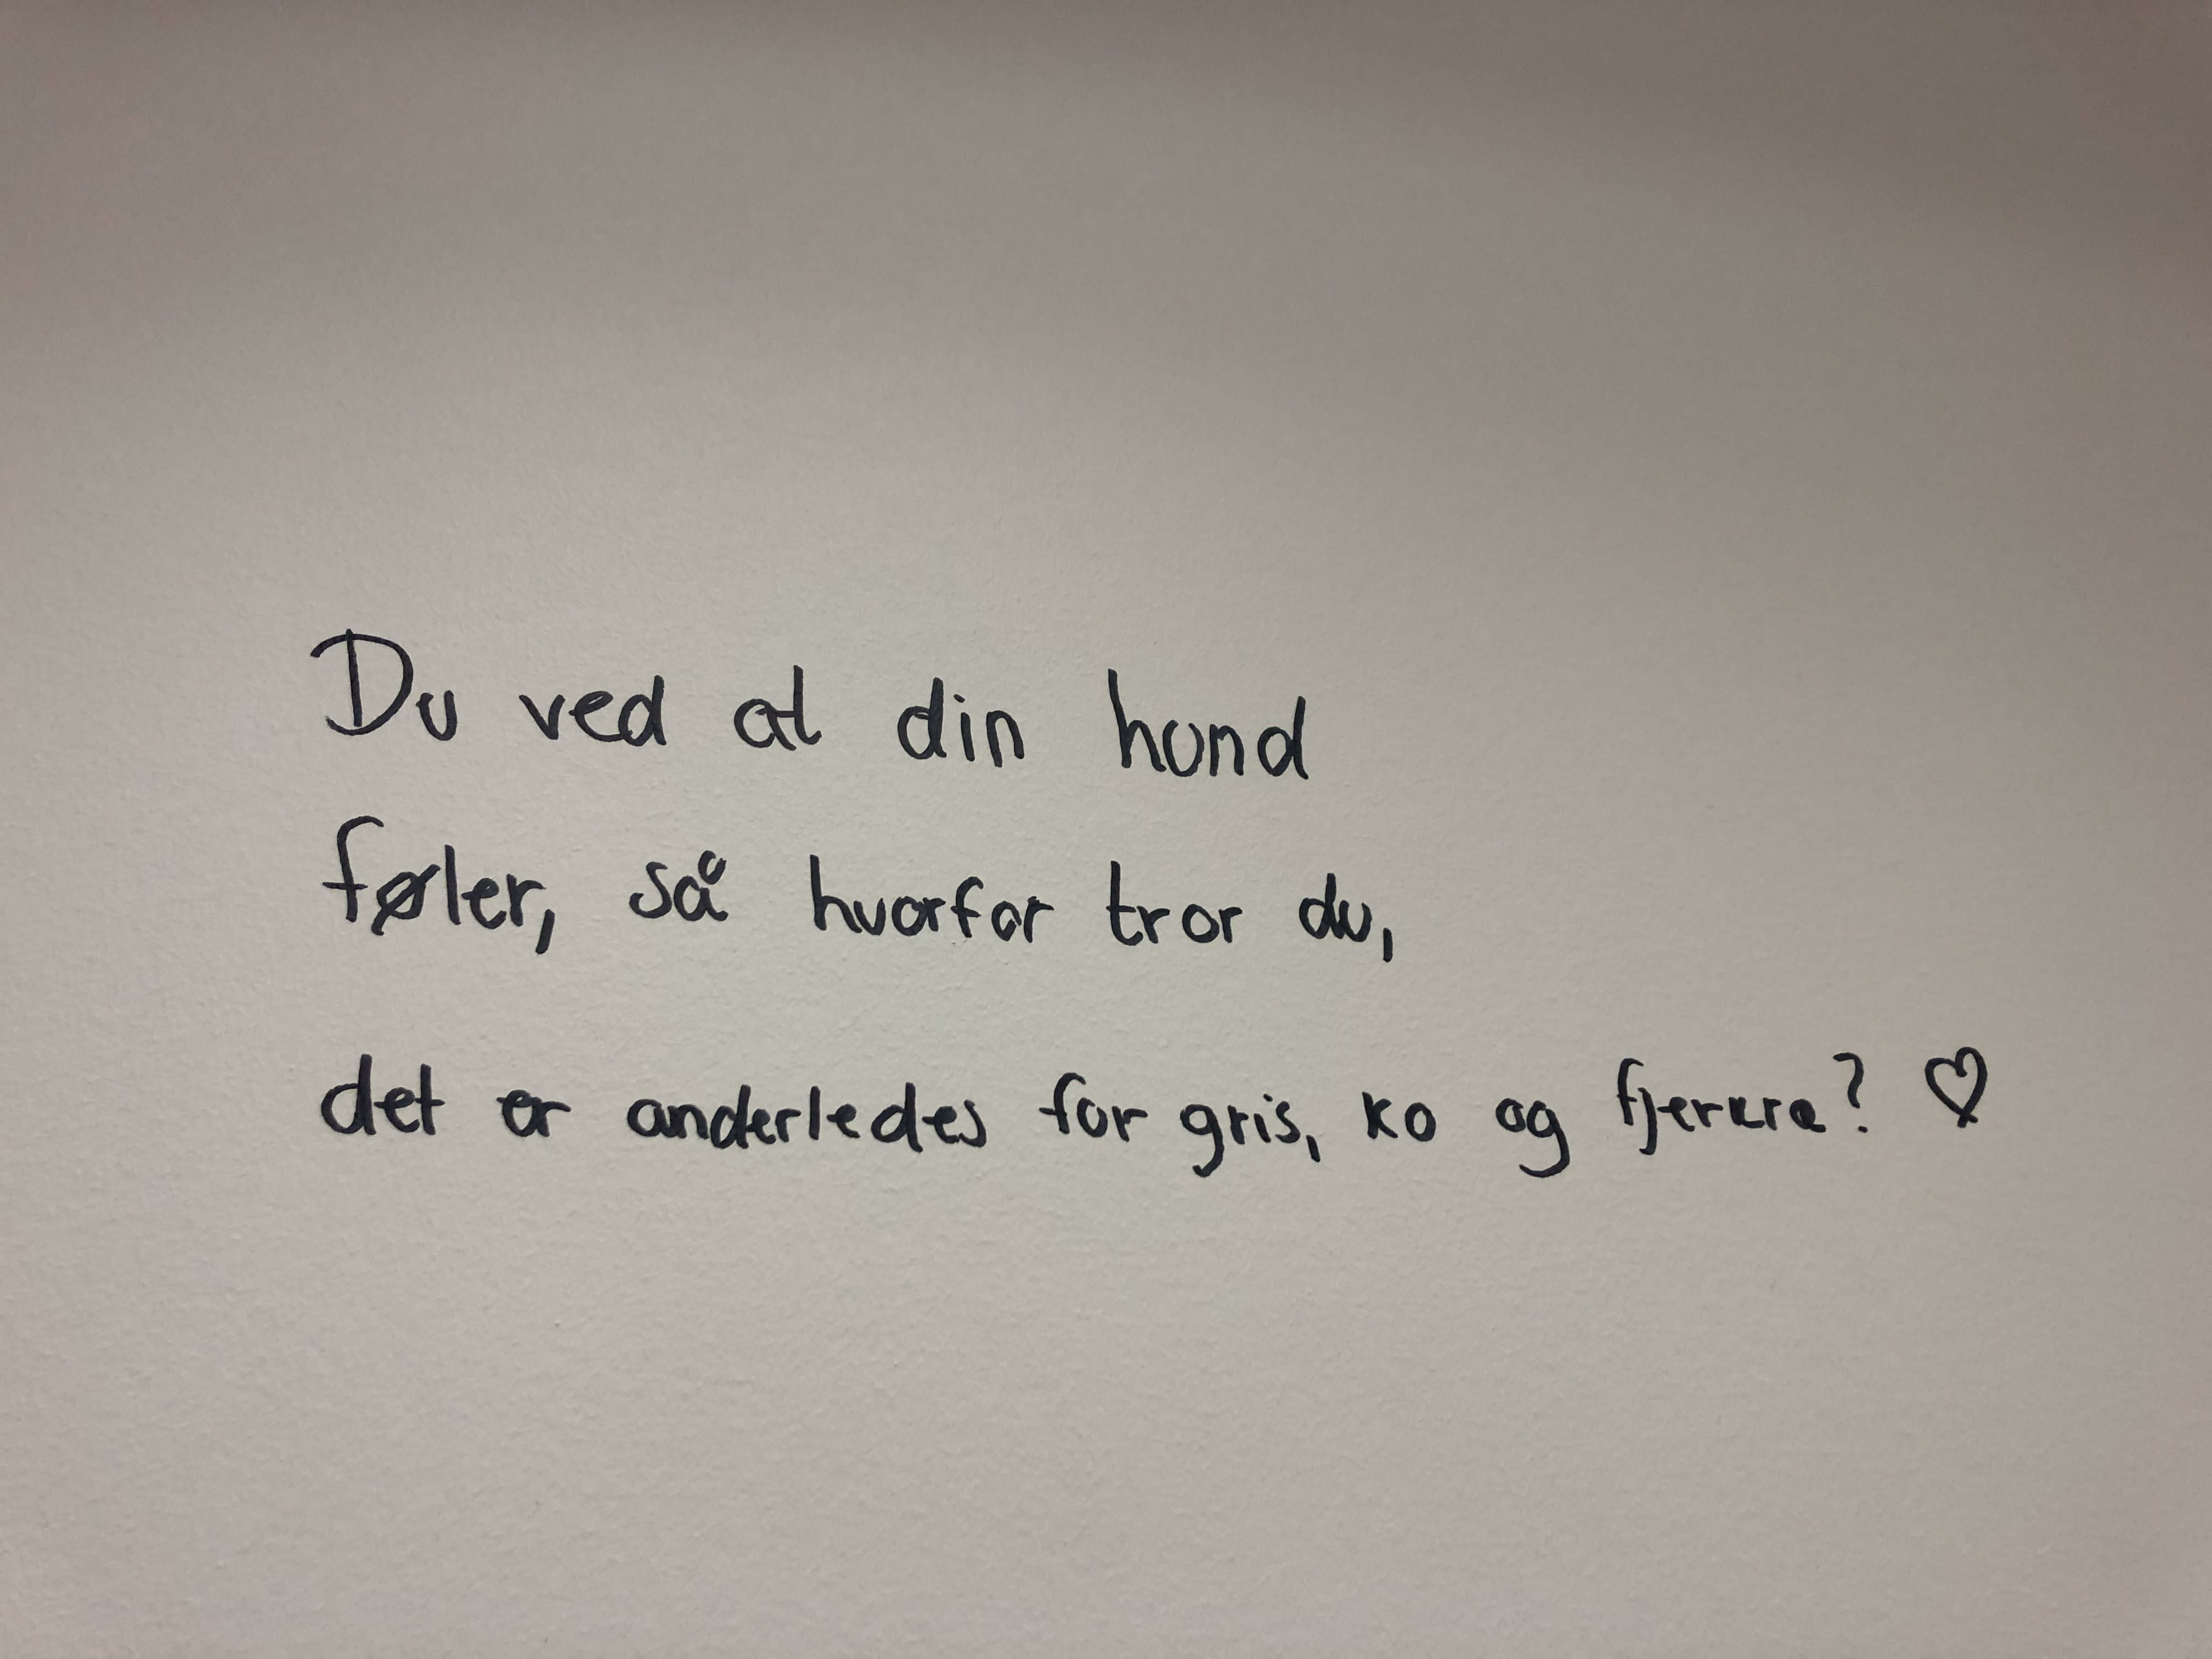 Du ved at din hund
føler, så hvorfor tror du,
det er anderledes for gris, ko og fjerkræ? ♡